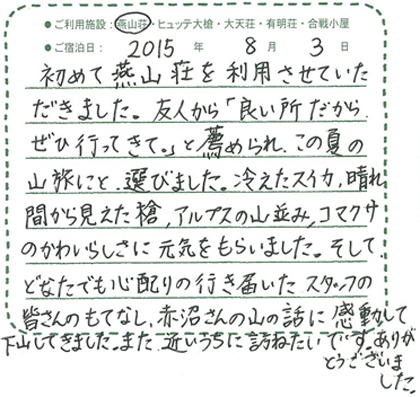 ●ご利用施設:燕山荘・ヒュッテ大槍・大天荘・有明荘・合戦小屋
●ご宿泊日: 2015 年 8 月 3 日
初めて燕山荘を利用させていた
だきました。友人から「良い所だから
ぜひ行ってきて。」と薦められ、この夏の
山旅にと、選びました。冷えたスイカ、晴れ
間から見えた槍、アルプスの山並み、コマクサ
のかわいらしさに元気をもらいました。そして、
どなたでも心配りの行き届いたスタッフの
皆さんのもてなし、赤沼さんの山の話に感動して
下山してきました。また、近いうちに訪ねたいです。ありが
とうございま
した。